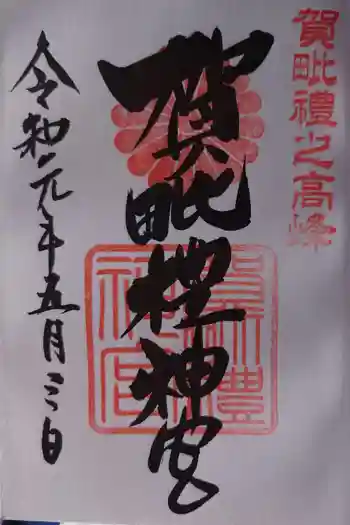 賀毗禮之高峰
賀毗禮神宮
令和元年五月三日